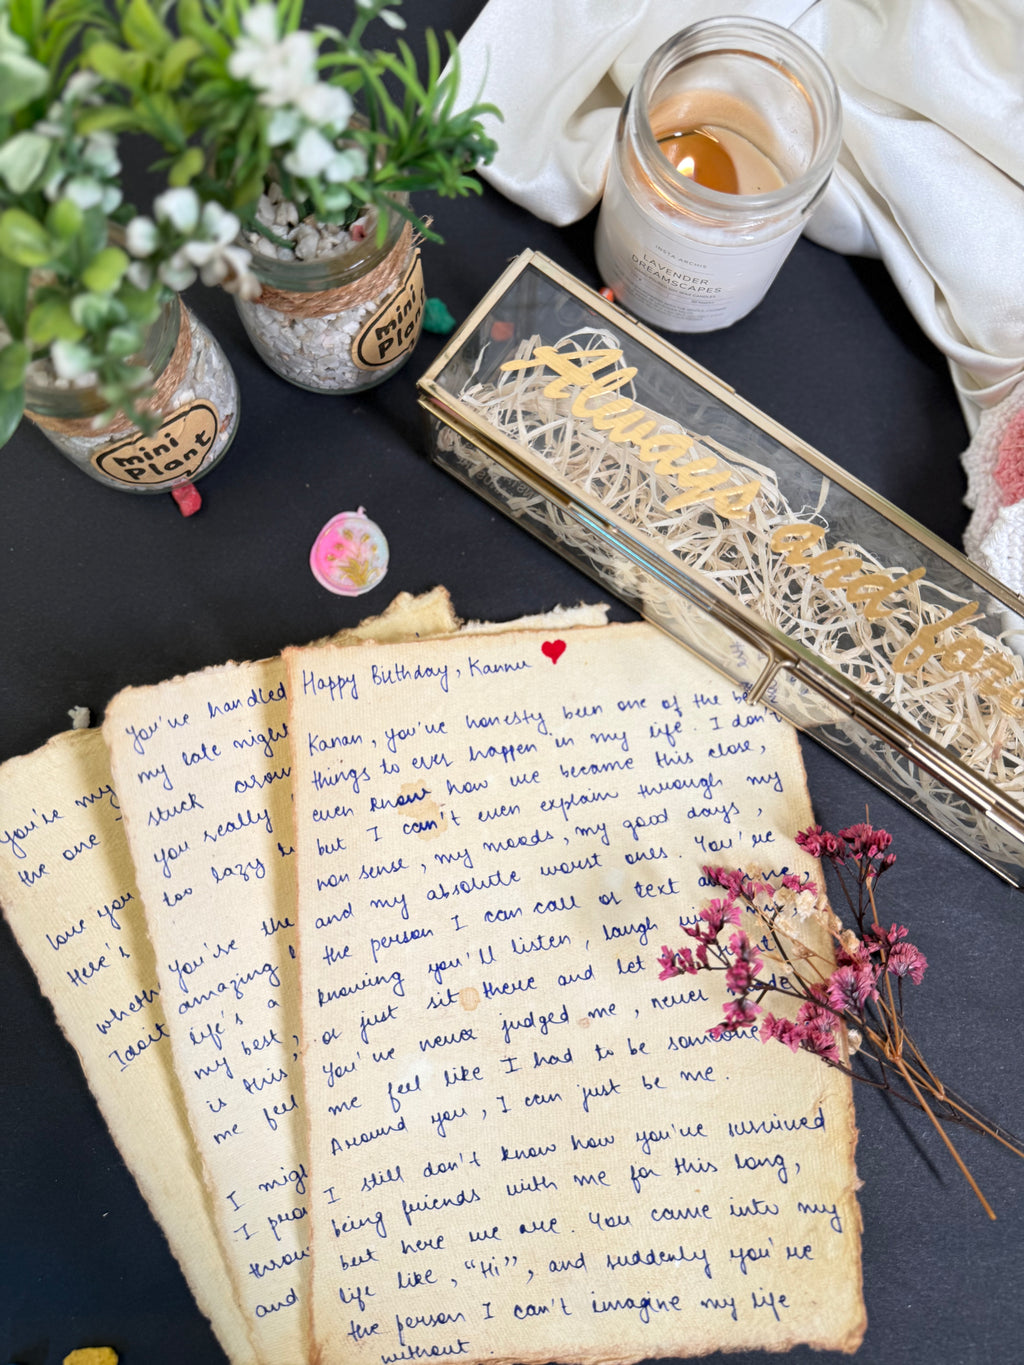 INSTA ARCHIE
LAVENDER
DREAMSCAPES
mini
Plant
mini
Plant
Always and for
You're my
the one
love you
Here's
wheth
I don't
You've handled
my late night
stuck
you really
too lazy
You're the
amazing
life's a
my best,
is this
me feel
I migh
I pro
throu
and
Happy Birthday, Kannu ♥
Kanan, you've honesty been one of the be
things to ever happen in my life. I don't
even know how we became this close,
but I can't even explain through my
non sense, my moods, my good days,
and my absolute worst ones. You're
the person I can call or text
knowing you'll listen, laugh
or just sit there and let
You've never judged me, never
me feel like I had to be someone
Around you, I can just be me.
I still don't know how you've survived
being friends with me for this long,
but here we are. You came into my
life like, "Hi", and suddenly you're
the person I can't imagine my life
without.